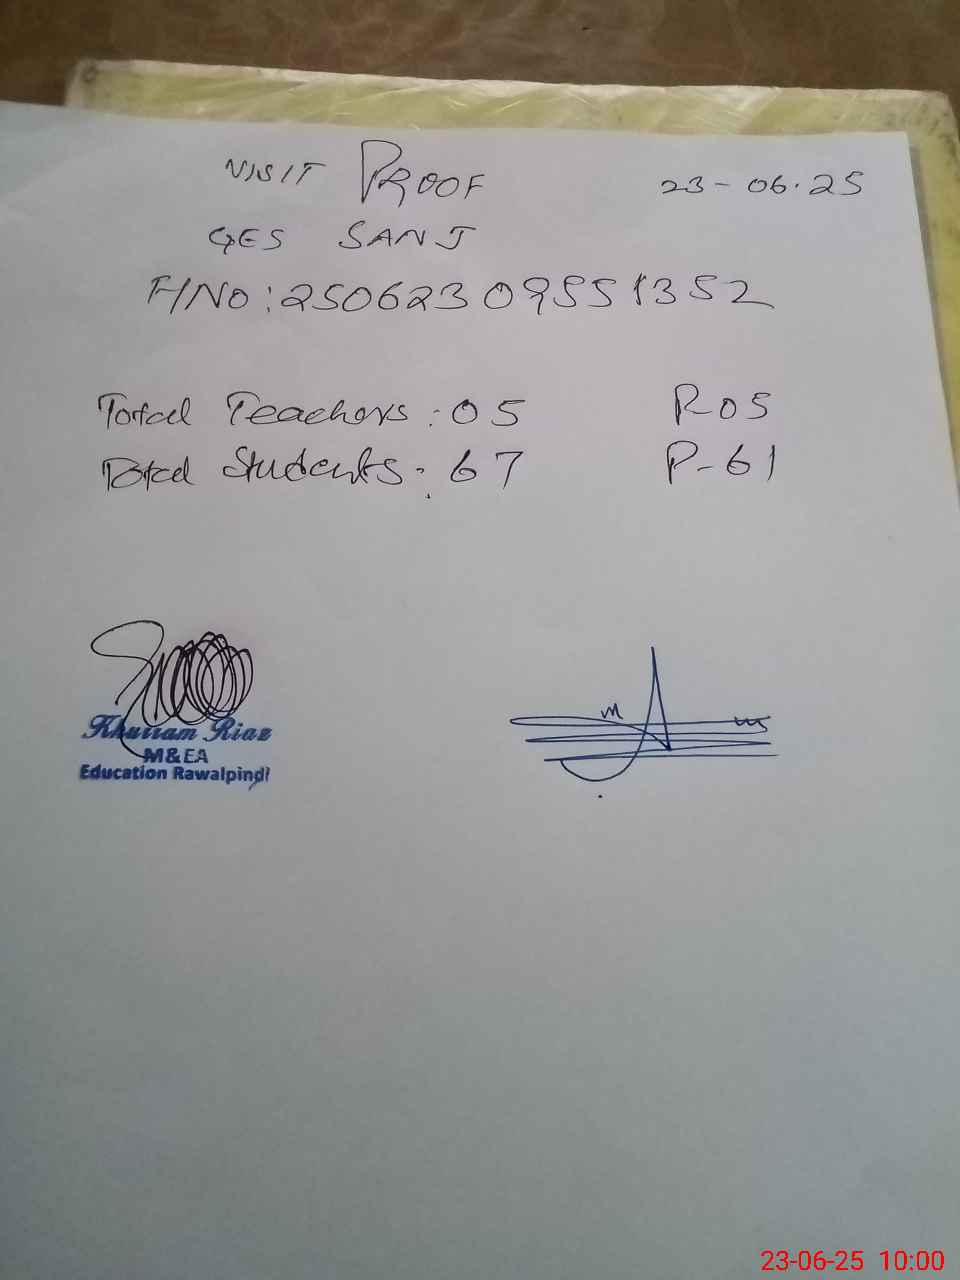 VISIT PROOF 23-06.25
GES SANJ
F/No: 25062309551352
Total Teachers: 05 P-05
Total Students: 67 P-61
Khurram Riaz
M&EA
Education Rawalpindi
23-06-25 10:00